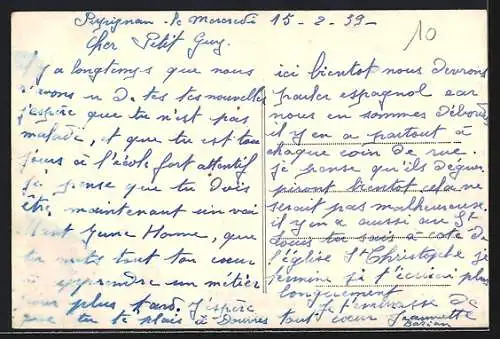 Perpignan - le Mercredi 15 - 2 - 39 -
10
Cher Petit Guy.
Il y a longtemps que nous
n'avons eu de tes nouvelles
j'espère que tu n'est pas
malade, et que tu est tou
jours à l'école fort attentif
Je pense que tu dois
être maintenant un vrai
Jeune Homme, que
tu mets tout ton coeur
à apprendre un métier
pour plus tard. J'espère
que tu te plais à Douvres
ici bientot nous devrons
parler espagnol car
nous en sommes débordés
il y en a partout à
chaque coin de rue.
je pense qu'ils déguer
piront bientot cela ne
serait pas malheureuse.
il y en a aussi au St
Louis tu sais à coté de
l'église St Christophe je
termine je t'écrirai plus
longuement
je t'embrasse de
tout coeur Jeannette